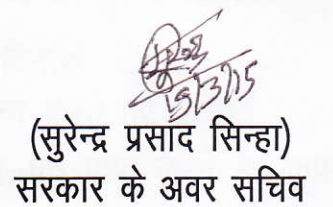 5/3/15
(सुरेन्द्र प्रसाद सिन्हा)
सरकार के अवर सचिव